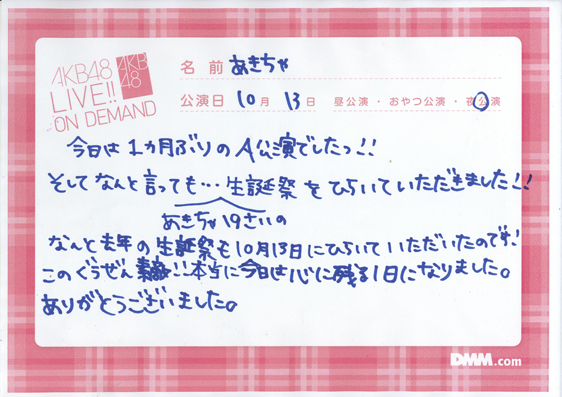 AKB48
LIVE!!
ON DEMAND
AKB
48
名前 あきちゃ
公演日 10月 13日 昼公演・おやつ公演・夜公演
今日は1ヵ月ぶりのA公演でしたっ!!
そしてなんと言っても…生誕祭をひらいていただきました!!
あきちゃ19さいの
なんと去年の生誕祭も10月13日にひらいていただいたのです!
このぐうぜん!!本当に今日は心に残る1日になりました。
ありがとうございました。
DMM.com